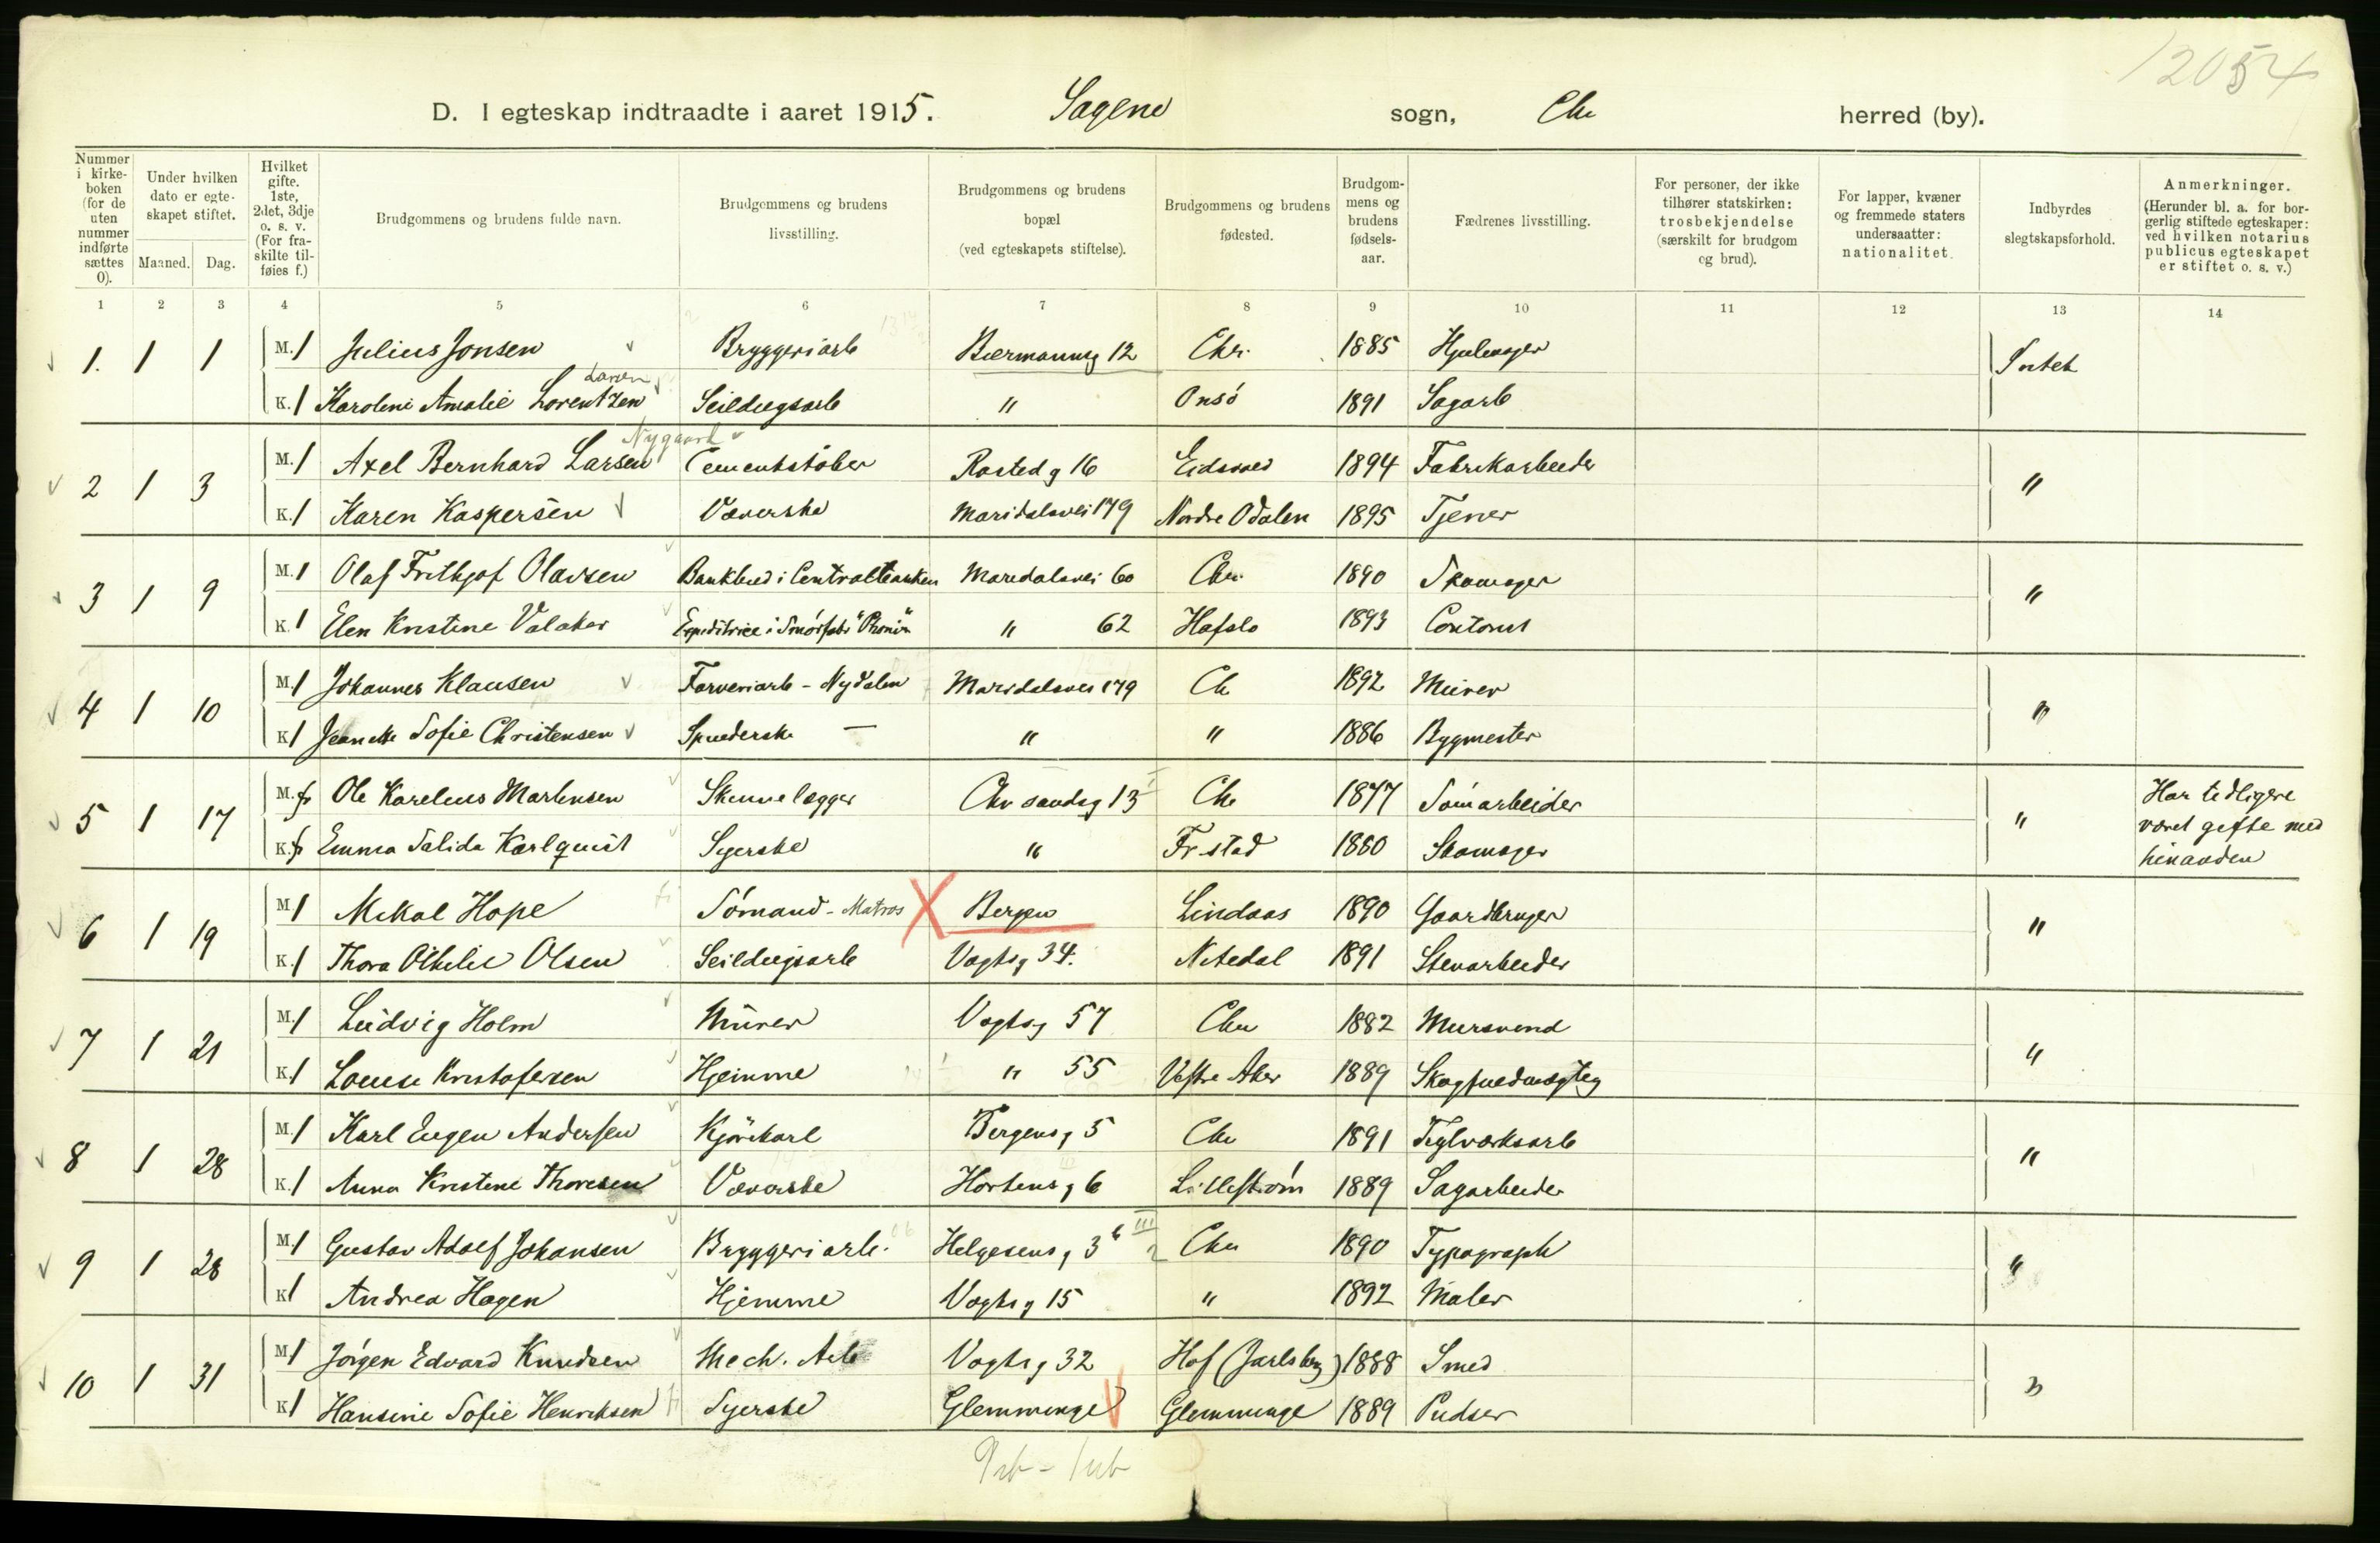 12054
D. I egteskap indtraadte i aaret 1915. Sagene sogn, Chr herred (by).
Nummer i kirke-boken (for de uten nummer indførte sættes 0).
Under hvilken dato er egte-skapet stiftet.
Maaned. Dag.
Hvilket gifte. 1ste, 2det, 3dje o. s. v. (For fra-skilte til-føies f.)
Brudgommens og brudens fulde navn.
Brudgommens og brudens livsstilling.
Brudgommens og brudens bopæl (ved egteskapets stiftelse).
Brudgommens og brudens fødested.
Brudgom-mens og brudens fødsels-aar.
Fædrenes livsstilling.
For personer, der ikke tilhører statskirken: trosbekjendelse (særskilt for brudgom og brud).
For lapper, kvæner og fremmede staters undersaatter: nationalitet.
Indbyrdes slegtskapsforhold.
Anmerkninger. (Herunder bl. a. for bor-gerlig stiftede egteskaper: ved hvilken notarius publicus egteskapet er stiftet o. s. v.)
1 2 3 4 5 6 7 8 9 10 11 12 13 14
1. 1 1 M. 1 Julius Jonsen Bryggeriarb Biermannsg 12 Chr. 1885 Hjulmager Intet
Larsen
K. 1 Karoline Amalie Lorentzen Seildugsarb " Onsö 1891 Sagarb
Nygaard
2 1 3 M. 1 Axel Bernhard Larsen Cementstöber Rostedg 16 Eidsvold 1894 Fabrikarbeider "
K. 1 Karen Kaspersen Væverske Maridalsvei 179 Nordre Odalen 1895 Tjener
3 1 9 M. 1 Olaf Frithjof Olavsen Bankbud i Centralbanken Maridalsvei 60 Chr. 1890 Skomager "
K. 1 Elen Kristine Valaker Expeditrice i Smörfabr "Phönix" " 62 Hafslo 1893 Contorist
4 1 10 M. 1 Johannes Klausen Farveriarb - Nydalen Maridalsvei 179 Ch 1892 Murer "
K. 1 Jeanette Sofie Christensen Spinderske — " " 1886 Bygmester
5 1 17 M. f Ole Karelius Martinsen Skinnelægger Chr sandsg 13 Chr 1877 Tomtarbeider " Har tidligere
været gifte med
K. f Emma Salida Karlquist Syerske " Fr.stad 1880 Skomager hinanden
6 1 19 M. 1 Mikal Hope Sömand - Matros Bergen Lindaas 1890 Gaardbruger "
K. 1 Thora Othilie Olsen Seildugsarb Vogtsg 34. Nitedal 1891 Stenarbeider
7 1 21 M. 1 Ludvig Holm Murer Vogtsg 57 Chr 1882 Mursvend "
K. 1 Louise Kristofersen Hjemme " 55 Vestre Aker 1889 Skogfuldmægtig
8 1 28 M. 1 Karl Eugen Andersen Kjörekarl Bergensg 5 Chr 1891 Teglverksarb "
K. 1 Anna Kristine Thoresen Væverske Hortensg 6 Lilleström 1889 Sagarbeider
9 1 28 M. 1 Gustav Adolf Johansen Bryggeriarb. Helgesensg 36 III Chr 1890 Typograph "
K. 1 Andrea Hagen Hjemme Vogtsg 15 " 1892 Maler
10 1 31 M. 1 Jörgen Edvard Knudsen Mech. Arb Vogtsg 32 Hof (Jarlsberg) 1888 Smed "
K. 1 Hansine Sofie Henriksen Syerske Glemminge Glemminge 1889 Pudser